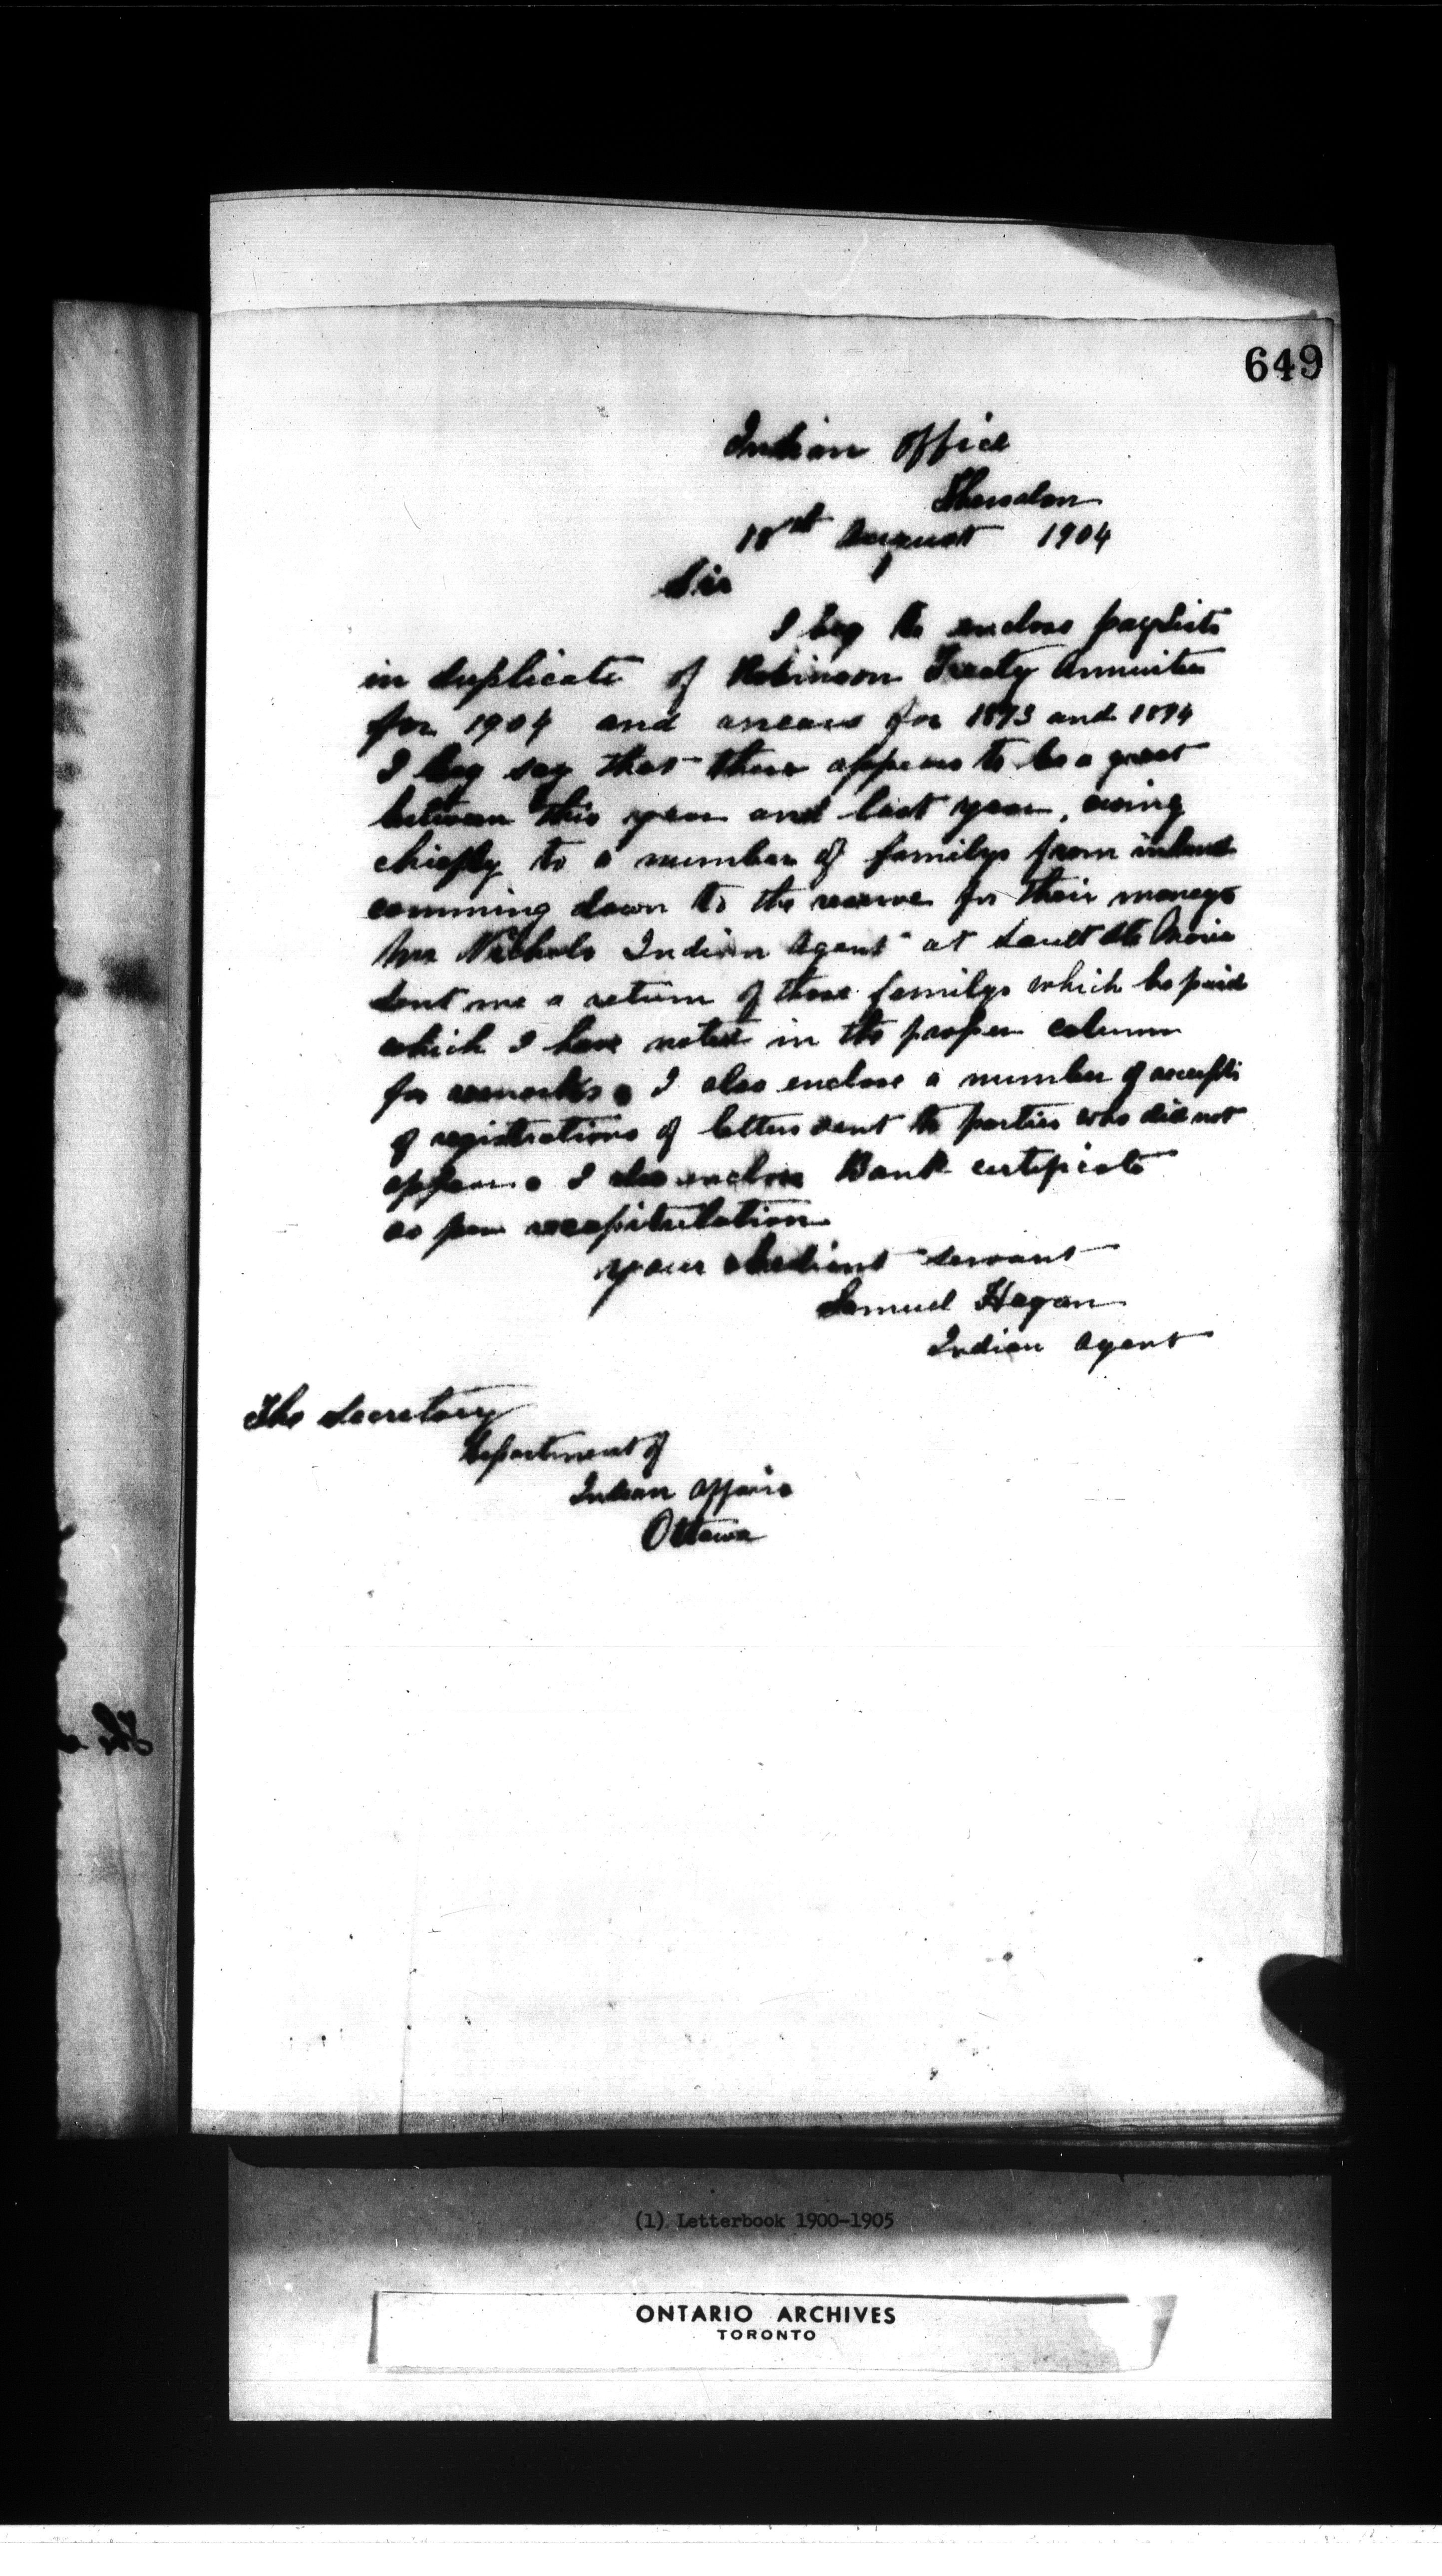 649
Indian Office
Thessalon
18st August 1904
Sir
I beg to enclose paylists
in duplicate of Robinson Treaty Annuities
for 1904 and arrears for 1893 and 1894
I beg say that there appears to be a great
between this year and last year, owing
chiefly to a number of familys from inland
comming down to the reserve for their moneys
Mr Nichols Indian Agent at Sault Ste Marie
sent me a return of those familys which he paid
which I have noted in the proper column
for remarks. I also enclose a number of receipts
of registrations of letters sent to parties who did not
appear. I also enclose Bank certificate
as per recapitulation
your obedient servant
Samuel Hagan
Indian Agent
The Secretary
Department of
Indian Affairs
Ottawa
The
(1) Letterbook 1900-1905
ONTARIO ARCHIVES
TORONTO